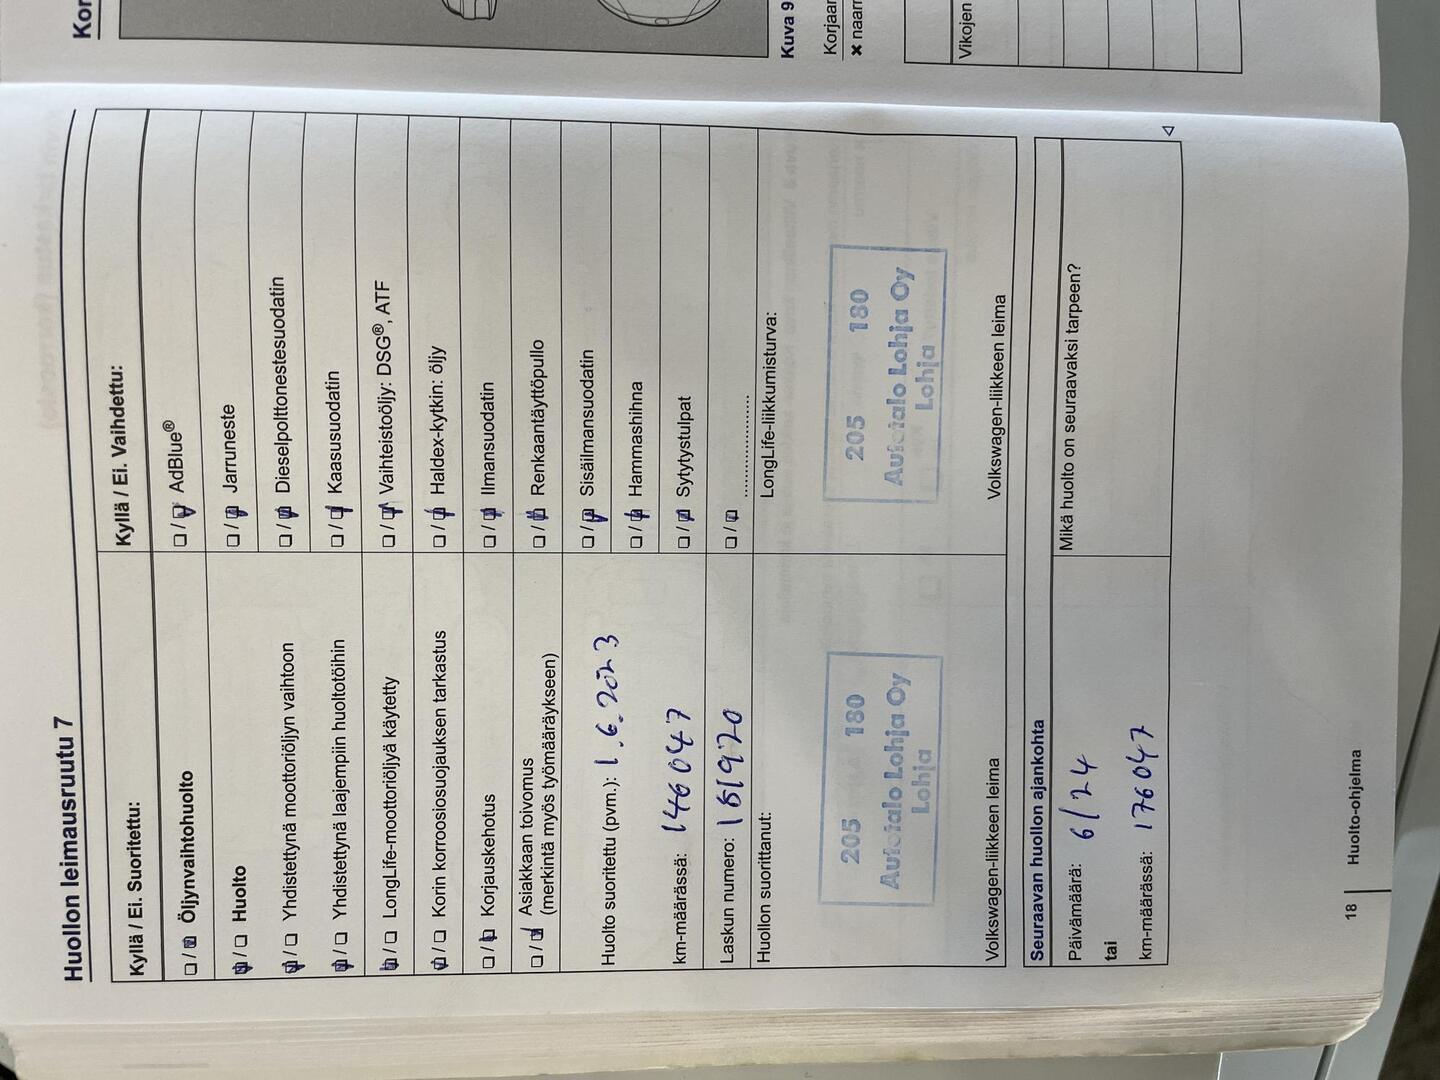 Huollon leimausruutu 7
Kyllä / Ei. Suoritettu:
❏ / ❏ Öljynvaihtohuolto
❏ / ❏ Huolto
❏ / ❏ Yhdistettynä moottoriöljyn vaihtoon
❏ / ❏ Yhdistettynä laajempiin huoltotöihin
❏ / ❏ LongLife-moottoriöljyä käytetty
❏ / ❏ Korin korroosiosuojauksen tarkastus
❏ / ❏ Korjauskehotus
❏ / ❏ Asiakkaan toivomus
(merkintä myös työmääräykseen)
Huolto suoritettu (pvm.): 1.6.2023
km-määrässä: 146047
Laskun numero: 151920
Huollon suorittanut:
205 180
Autotalo Lohja Oy
Lohja
Volkswagen-liikkeen leima
Kyllä / Ei. Vaihdettu:
❏ / ❏ AdBlue®
❏ / ❏ Jarruneste
❏ / ❏ Dieselpolttonestesuodatin
❏ / ❏ Kaasusuodatin
❏ / ❏ Vaihteistoöljy: DSG®, ATF
❏ / ❏ Haldex-kytkin: öljy
❏ / ❏ Ilmansuodatin
❏ / ❏ Renkaantäyttöpullo
❏ / ❏ Sisäilmansuodatin
❏ / ❏ Hammashihna
❏ / ❏ Sytytystulpat
❏ / ❏ ....................
LongLife-liikkumisturva:
205 180
Autotalo Lohja Oy
Lohja
Volkswagen-liikkeen leima
Seuraavan huollon ajankohta
Päivämäärä: 6/24
tai
km-määrässä: 176047
Mikä huolto on seuraavaksi tarpeen?
18 Huolto-ohjelma
Kor
Kuva 9
Korjaar
✖ naarm
Vikojen